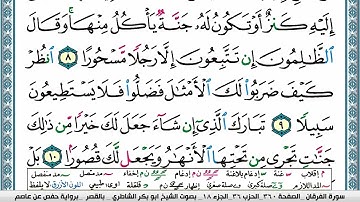 إِلَيْهِ كَنزٌ أَوْ تَكُونُ لَهُۥ جَنَّةٌ يَأْكُلُ مِنْهَا ۚ وَقَالَ
ٱلظَّٰلِمُونَ إِن تَتَّبِعُونَ إِلَّا رَجُلًا مَّسْحُورًا ٨ ٱنظُرْ
كَيْفَ ضَرَبُوا۟ لَكَ ٱلْأَمْثَٰلَ فَضَلُّوا۟ فَلَا يَسْتَطِيعُونَ
سَبِيلًا ٩ تَبَارَكَ ٱلَّذِىٓ إِن شَآءَ جَعَلَ لَكَ خَيْرًا مِّن ذَٰلِكَ
جَنَّٰتٍ تَجْرِى مِن تَحْتِهَا ٱلْأَنْهَٰرُ وَيَجْعَل لَّكَ قُصُورًا ١٠
سورة الفرقان . الصفحة ٣٦٠ . الحزب ٣٦ . الجزء ١٨ . بصوت الشيخ أبو بكر الشاطري . بالقصر . برواية حفص عن عاصم